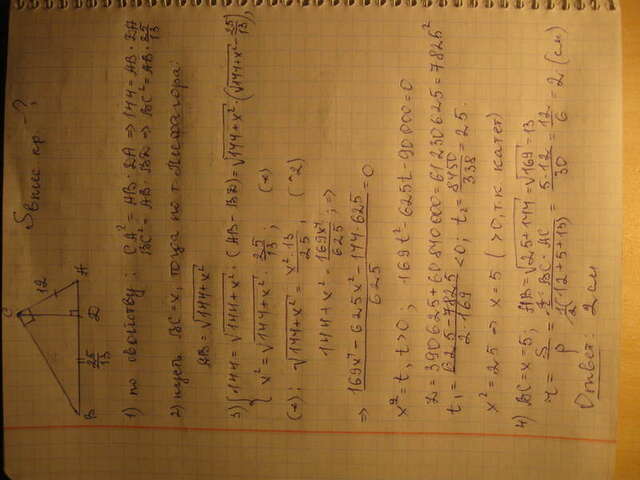 Sвпис. кр. - ?
C
12
B
D
A
25/13
1) по свойству: CA² = AB · DA ⇒ 144 = AB · DA
BC² = AB · BD ⇒ BC² = AB · 25/13
2) пусть BC = x, тогда по т. Пифагора:
AB = √(144+x²)
3) { 144 = √(144+x²) · (AB - BD) = √(144+x²) · (√(144+x²) - 25/13),
x² = √(144+x²) · 25/13, (*)
(*): √(144+x²) = x²·13/25, (^2)
144 + x² = 169x⁴/625, ⇒
⇒ (169x⁴ - 625x² - 144·625)/625 = 0
x² = t, t>0; 169t² - 625t - 90000 = 0
D = 390625 + 60840000 = 61230625 = 7825²
t₁ = (625 - 7825)/(2·169) < 0; t₂ = 8450/338 = 25.
x² = 25 ⇒ x = 5 (>0, т.к. катет)
4) BC = x = 5; AB = √(25+144) = √169 = 13
r = S/p = (½ · BC · AC)/(½(12+5+13)) = 5·12/30 = 12/6 = 2 (см)
Ответ: 2 см